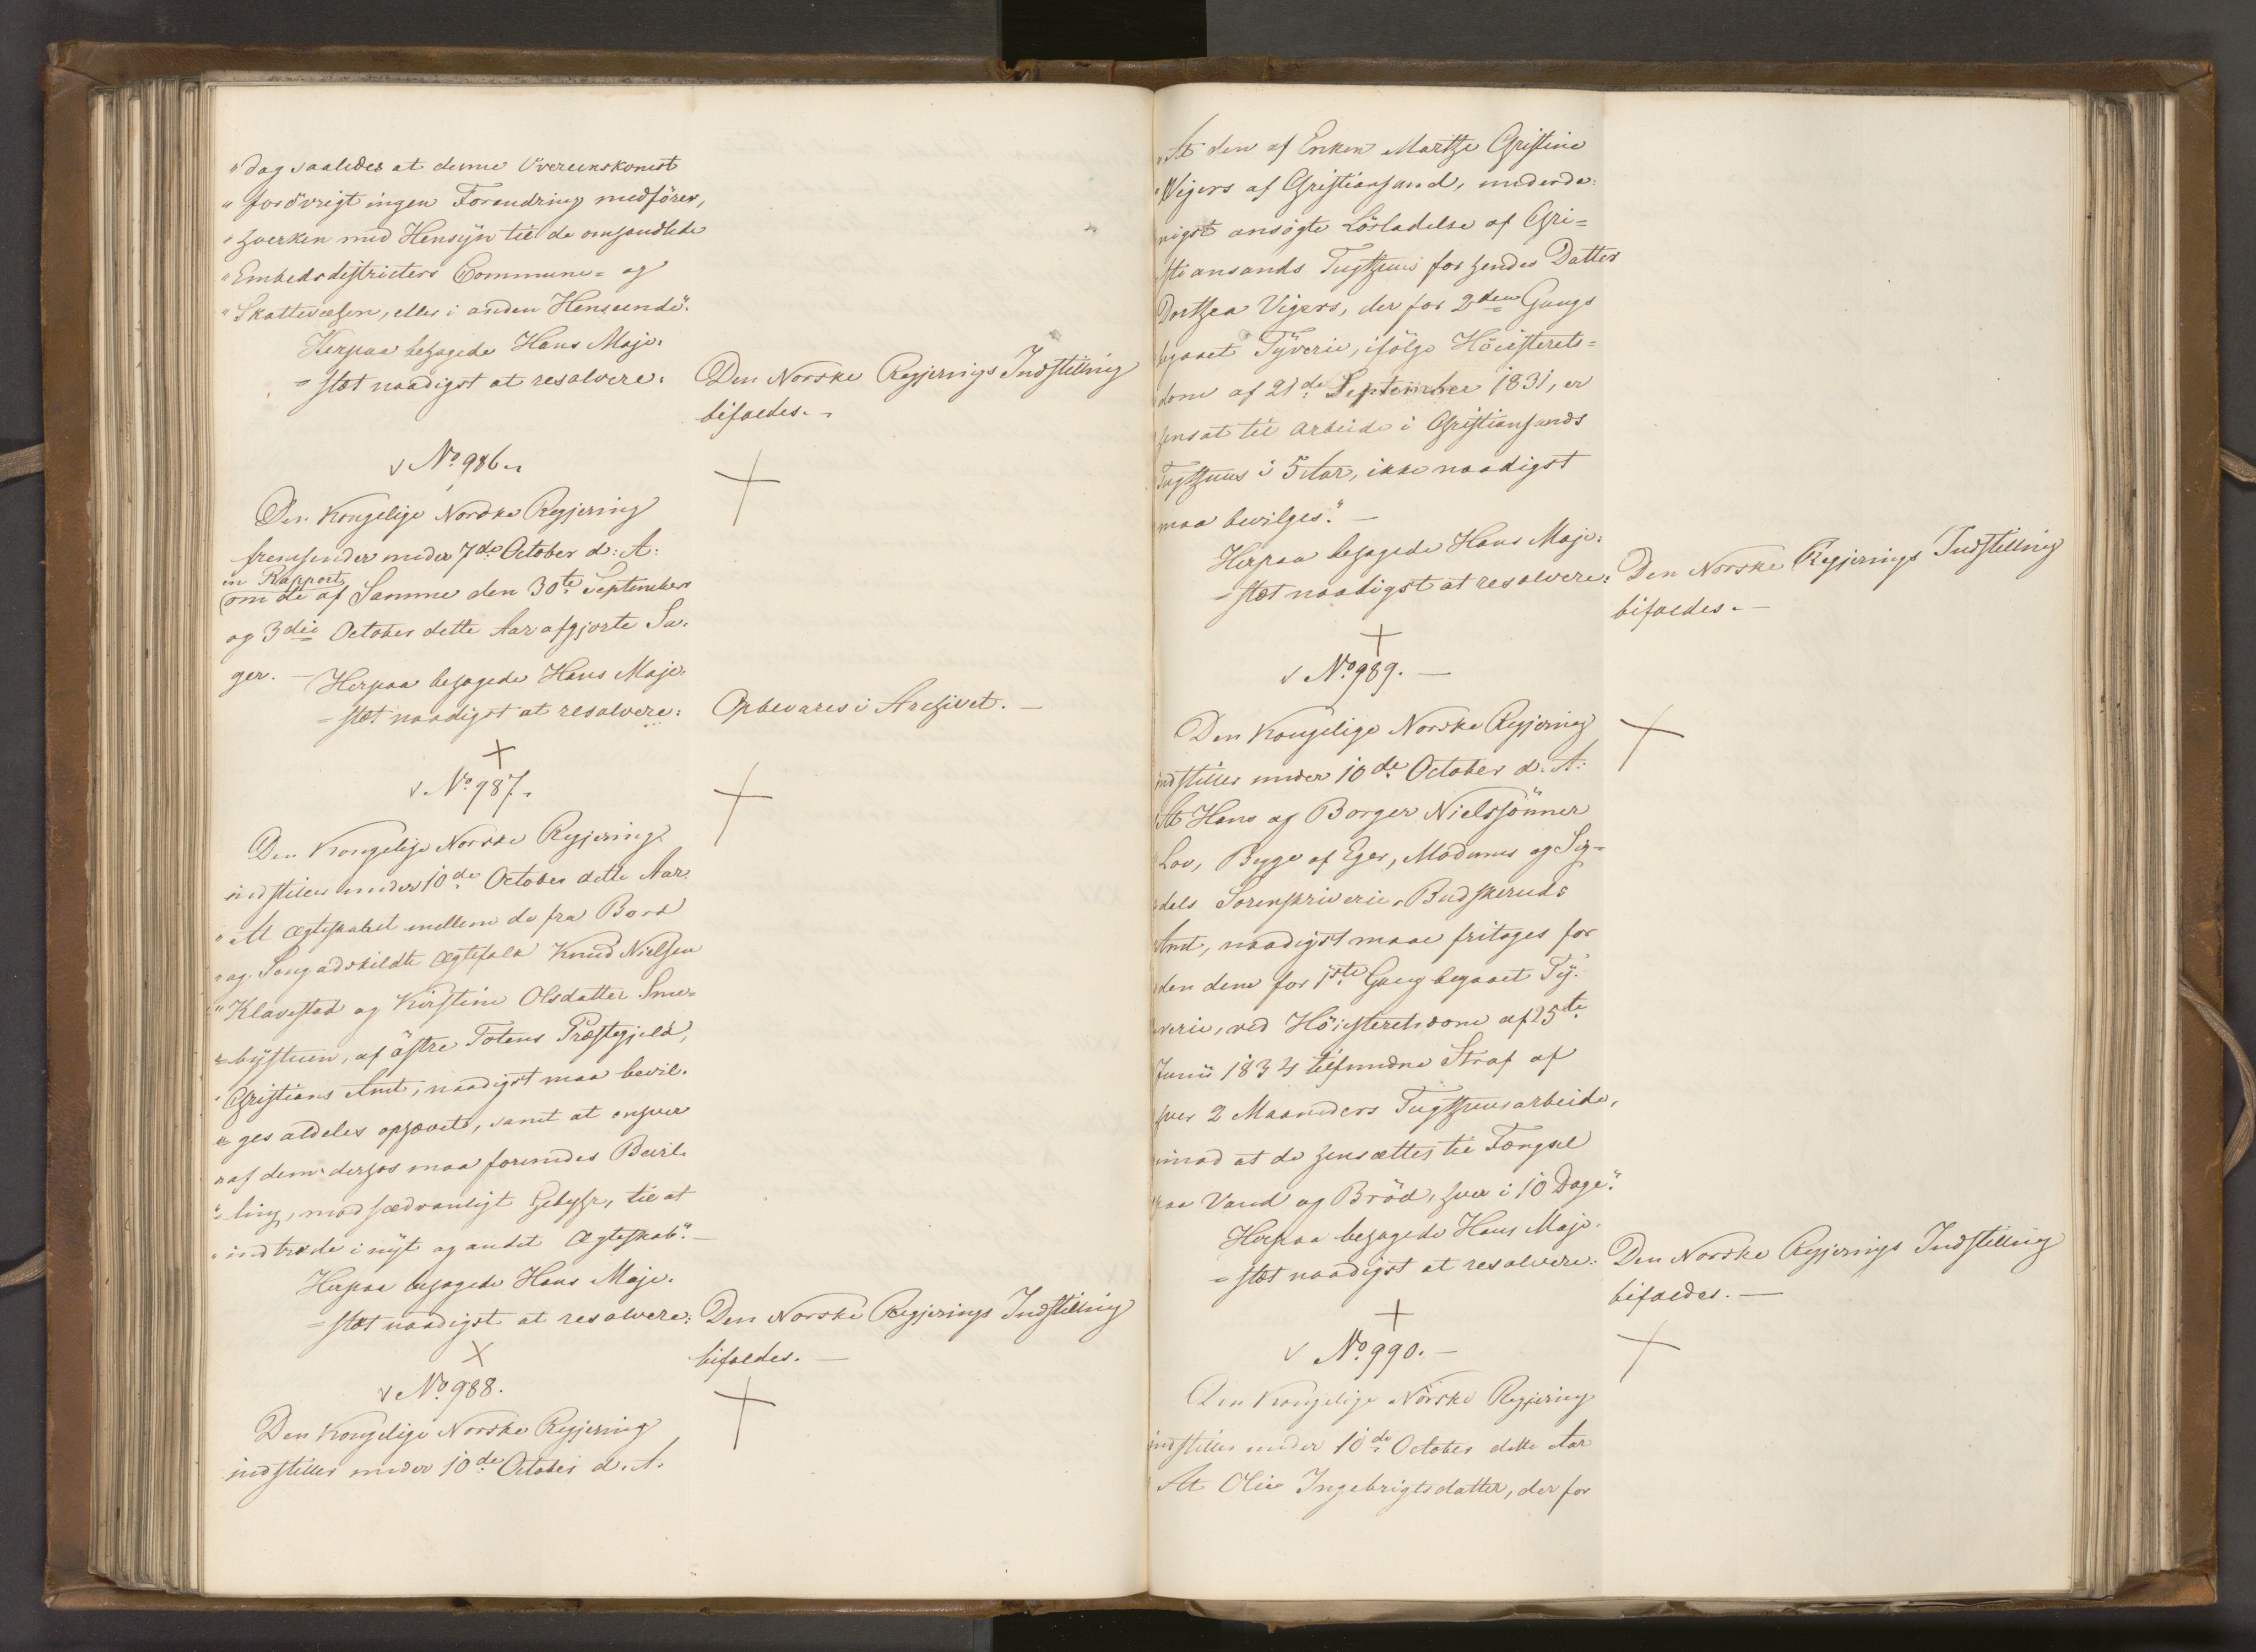 "dag saaledes at denne Overeenskomst
"forövrigt ingen Forandring medförer,
"hverken med Hensyn til de omhandlede
"Embedsdistricters Commune= og
"Skattevæsen, eller i anden Henseende".
Herpaa behagede Hans Maje=
=stæt naadigst at resolvere: Den Norske Regjerings Indstilling
bifaldes. -
No 986.
Den Kongelige Norske Regjering
fremsender under 7de October d: A:
en Rapport
om de af Samme den 30te September
og 3die October dette Aar afgjorte Sa=
ger. — Herpaa behagede Hans Maje=
=stæt naadigst at resolvere: Opbevares i Archivet. —
No 987.
Den Kongelige Norske Regjering
indstiller under 10de October dette Aar.
"At Ægteskabet mellem de fra Bord
"og Seng adskildte Ægtefolk Knud Nielsen
"Klavestad og Kirstine Olsdatter Sme=
"=bystuen, af östre Totens Præstegjeld,
"Christians Amt, naadigst maa bevil=
"ges aldeles ophævet, samt at enhver
"af dem derhos maa forundes Bevil=
"ling, mod sædvanligt Gebyhr, til at
"indtræde i nyt og andet Ægteskab". —
Herpaa behagede Hans Maje=
=stæt naadigst at resolvere: Den Norske Regjerings Indstilling
bifaldes. —
No 988.
Den Kongelige Norske Regjering
indstiller under 10de October d. A.
"At den af Enken Marthe Christine
"Vigers af Christiansand, underda=
nigst ansögte Lösladelse af Chri=
stiansands Tugthuus for hendes Datter
Dorthea Vigers, der for 2den Gangs
begaaet Tyverie, ifölge Höiesterets=
dom af 21de September 1831, er
hensat til Arbeide i Christiansands
Tugthuus i 5 Aar, ikke naadigst
maa bevilges." —
Herpaa behagede Hans Maje=
=stæt naadigst at resolvere: Den Norske Regjerings Indstilling
bifaldes. —
No 989. —
Den Kongelige Norske Regjering
indstiller under 10de October d. A:
At Hans og Borger Nielssönner
Lov, Begge af Eger, Modums og Sig=
dals Sorenskriverie, Budskeruds
Amt, naadigst maae fritages for
den dem for 1ste Gang begaaet Ty=
verie, ved Höiesteretsdom af 25de
Junii 1834 tilfundne Straf af
hver 2 Maaneders Tugthuusarbeide,
imod at de hensættes til Fængsel
paa Vand og Bröd, hver i 10 Dage".
Herpaa behagede Hans Maje=
=stæt naadigst at resolvere: Den Norske Regjerings Indstilling
bifaldes. —
No 990. —
Den Kongelige Norske Regjering
indstiller under 10de October dette Aar
At Olia Ingebrigtsdatter, der for